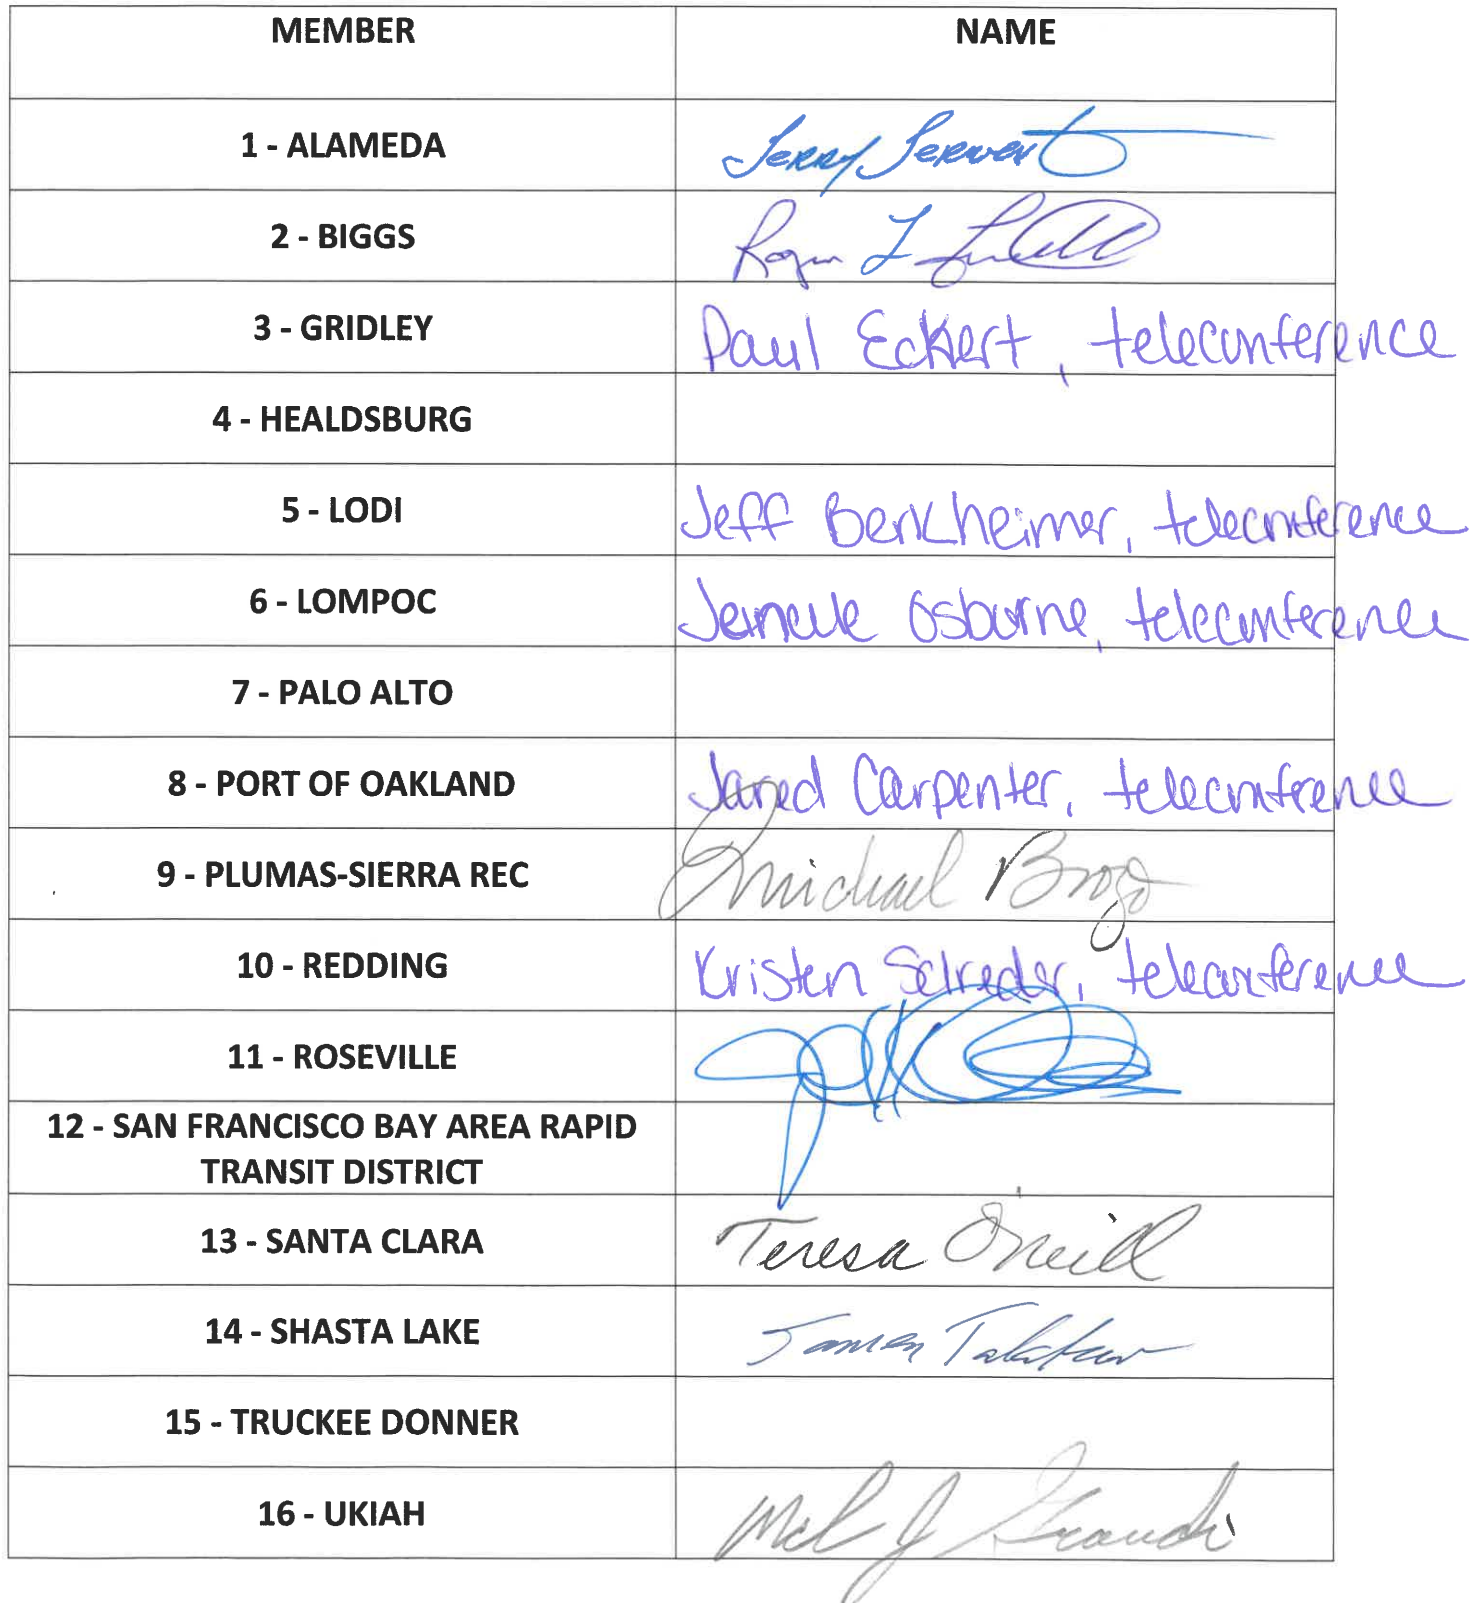 MEMBER NAME
1 - ALAMEDA Jerry Servent
2 - BIGGS Roger L
3 - GRIDLEY Paul Eckert, teleconference
4 - HEALDSBURG
5 - LODI Jeff Berkheimer, teleconference
6 - LOMPOC Osburne, teleconference
7 - PALO ALTO
8 - PORT OF OAKLAND Jared Carpenter, teleconference
9 - PLUMAS-SIERRA REC Michael Brozo
10 - REDDING Kristen Schreder, teleconference
11 - ROSEVILLE
12 - SAN FRANCISCO BAY AREA RAPID
TRANSIT DISTRICT
13 - SANTA CLARA Teresa O'Neill
14 - SHASTA LAKE James Takatow
15 - TRUCKEE DONNER
16 - UKIAH Mel J Grandi